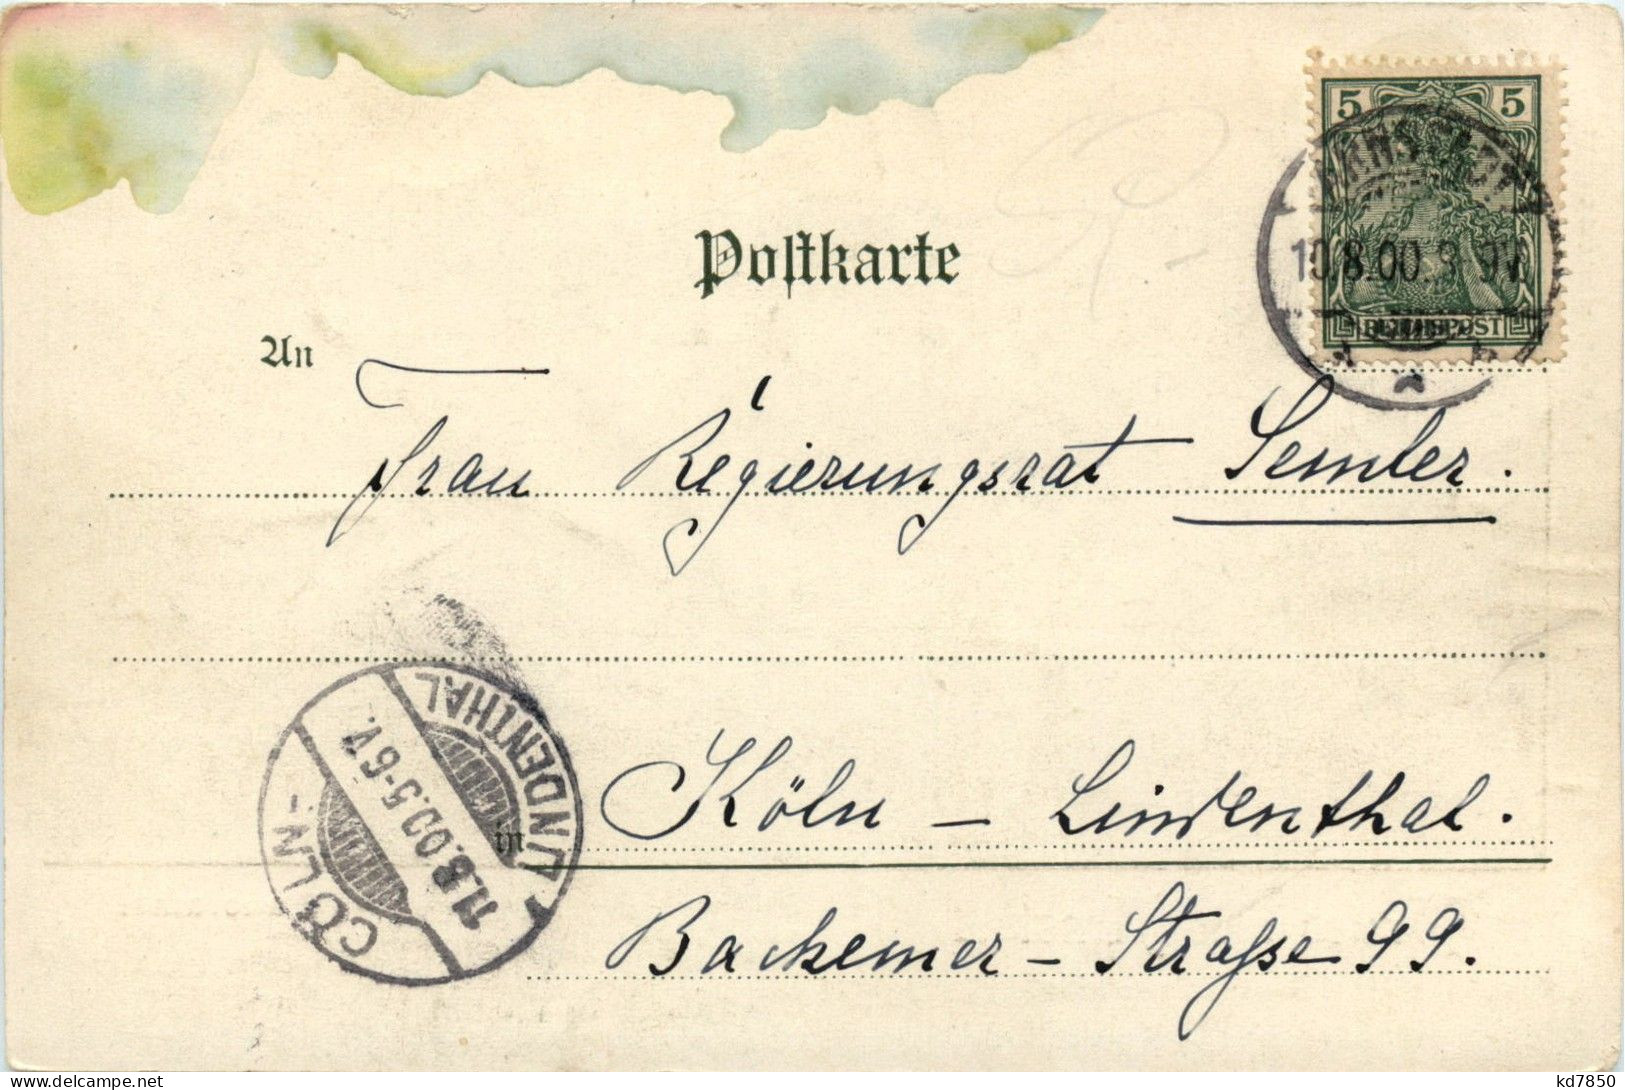 5 5
10.8.00. 8-9V.
REICHSPOST
Postkarte
An
Frau Regierungsrat Semler.
CÖLN-LINDENTHAL
11.8.00.5-6V.
in Köln - Lindenthal.
Bachemer - Straße 99.
delcampe.net
kd7850